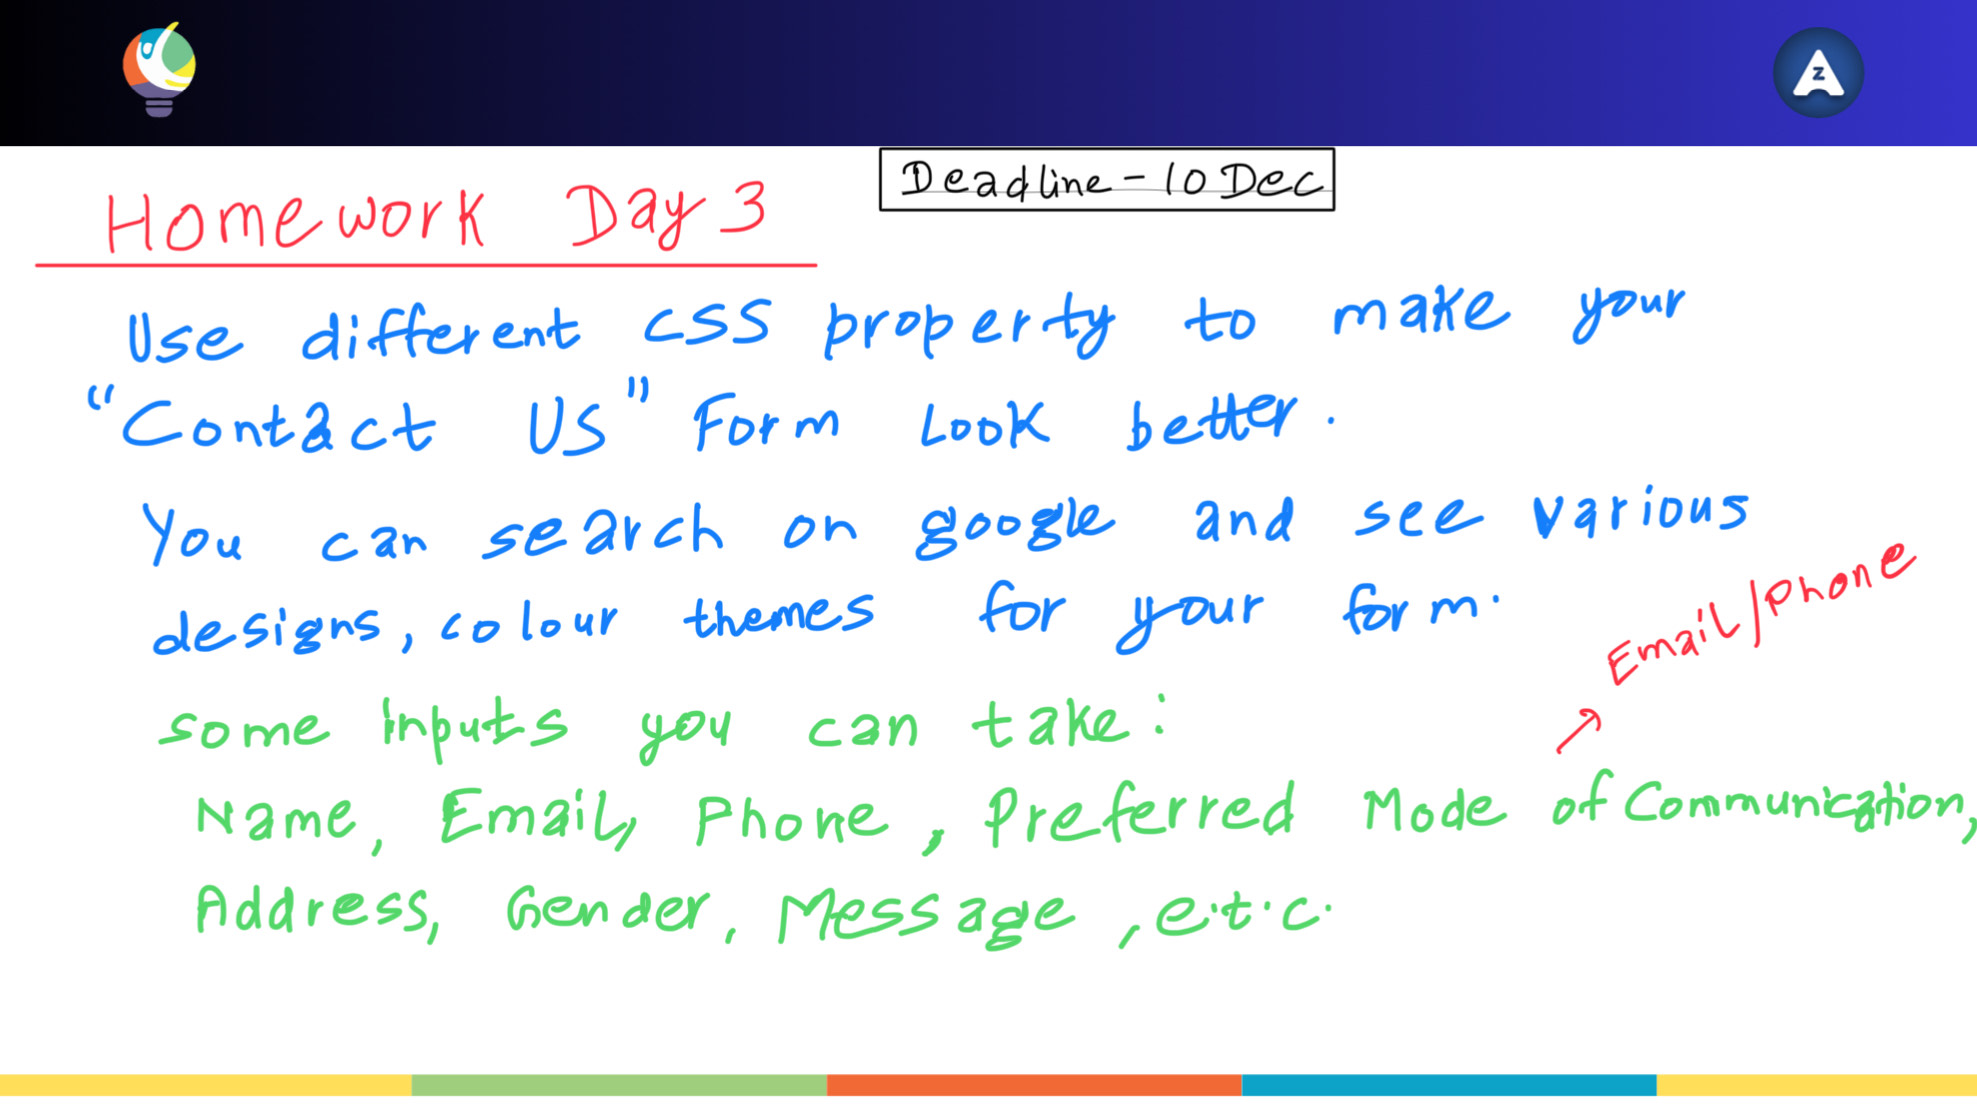 Z
Deadline - 10 Dec
Homework Day 3
Use different CSS property to make your
"Contact US" Form Look better.
You can search on google and see various
designs, colour themes for your form.
Email/Phone
some inputs you can take:
Name, Email, Phone, Preferred Mode of Communication,
Address, Gender, Message, e.t.c.